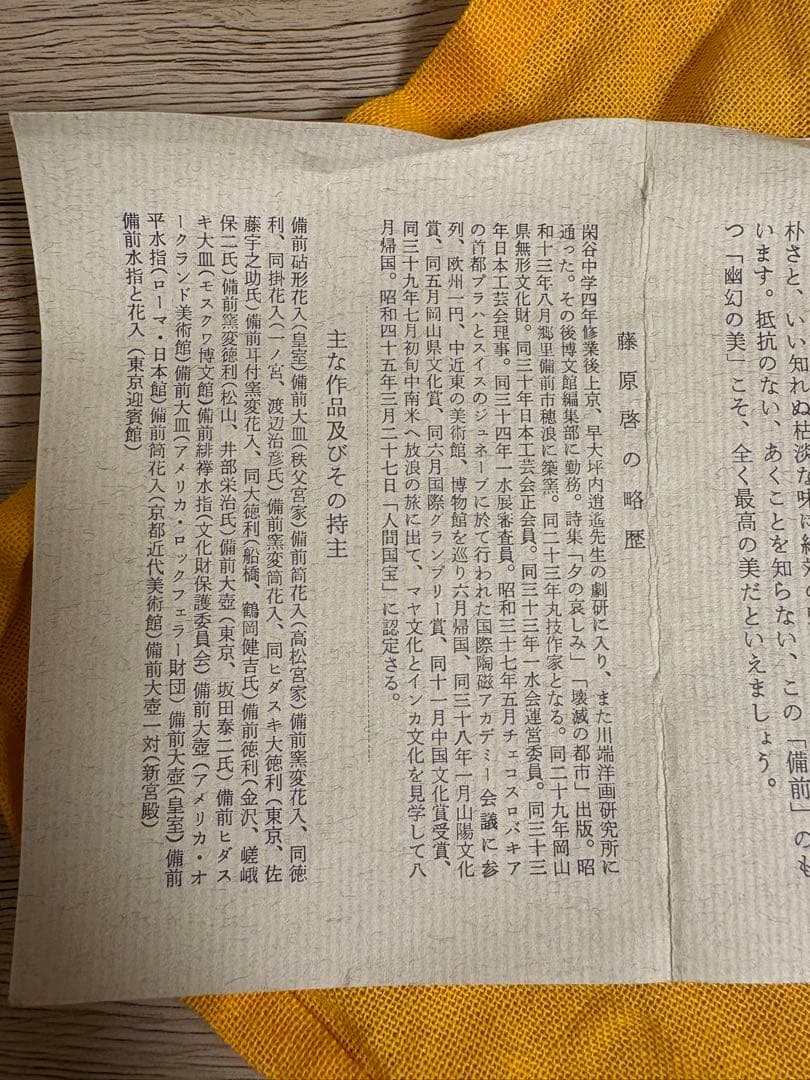 朴さと、いい知れぬ枯淡な味に
います。抵抗のない、あくことを知らない、この「備前」のも
つ「幽幻の美」こそ、全く最高の美だといえましょう。
藤原啓の略歴
閑谷中学四年修業後上京、早大坪内逍遙先生の劇研に入り、また川端洋画研究所に
通った。その後博文館編集部に勤務。詩集「夕の哀しみ」「壊滅の都市」出版。昭
和十三年八月郷里備前市穂浪に築窯。同二十三年丸技作家となる。同二十九年岡山
県無形文化財。同三十年日本工芸会正会員。同三十三年一水会運営委員。同三十三
年日本工芸会理事。同三十四年一水展審査員。昭和三十七年五月チェコスロバキア
の首都プラハとスイスのジュネーブに於て行われた国際陶磁アカデミー会議に参
列、欧州一円、中近東の美術館、博物館を巡り六月帰国、同三十八年一月山陽文化
賞、同五月岡山県文化賞、同六月国際グランプリー賞、同十一月中国文化賞受賞、
同三十九年七月初旬中南米へ放浪の旅に出て、マヤ文化とインカ文化を見学して八
月帰国。昭和四十五年三月二十七日「人間国宝」に認定さる。
主な作品及びその持主
備前砧形花入(皇室)備前大皿(秩父宮家)備前筒花入(高松宮家)備前窯変花入、同徳
利、同掛花入(一ノ宮、渡辺治彦氏)備前窯変筒花入、同ヒダスキ大徳利(東京、佐
藤宇之助氏)備前耳付窯変花入、同大徳利(船橋、鶴岡健吉氏)備前徳利(金沢、嵯峨
保二氏)備前窯変徳利(松山、井部栄治氏)備前大壺(東京、坂田泰二氏)備前ヒダス
キ大皿(モスクワ博文館)備前緋襷水指(文化財保護委員会)備前大壺(アメリカ・オ
ークランド美術館)備前大皿(アメリカ・ロックフェラー財団)備前大壺(皇室)備前
平水指(ローマ・日本館)備前筒花入(京都近代美術館)備前大壺一対(新宮殿)
備前水指と花入(東京迎賓館)